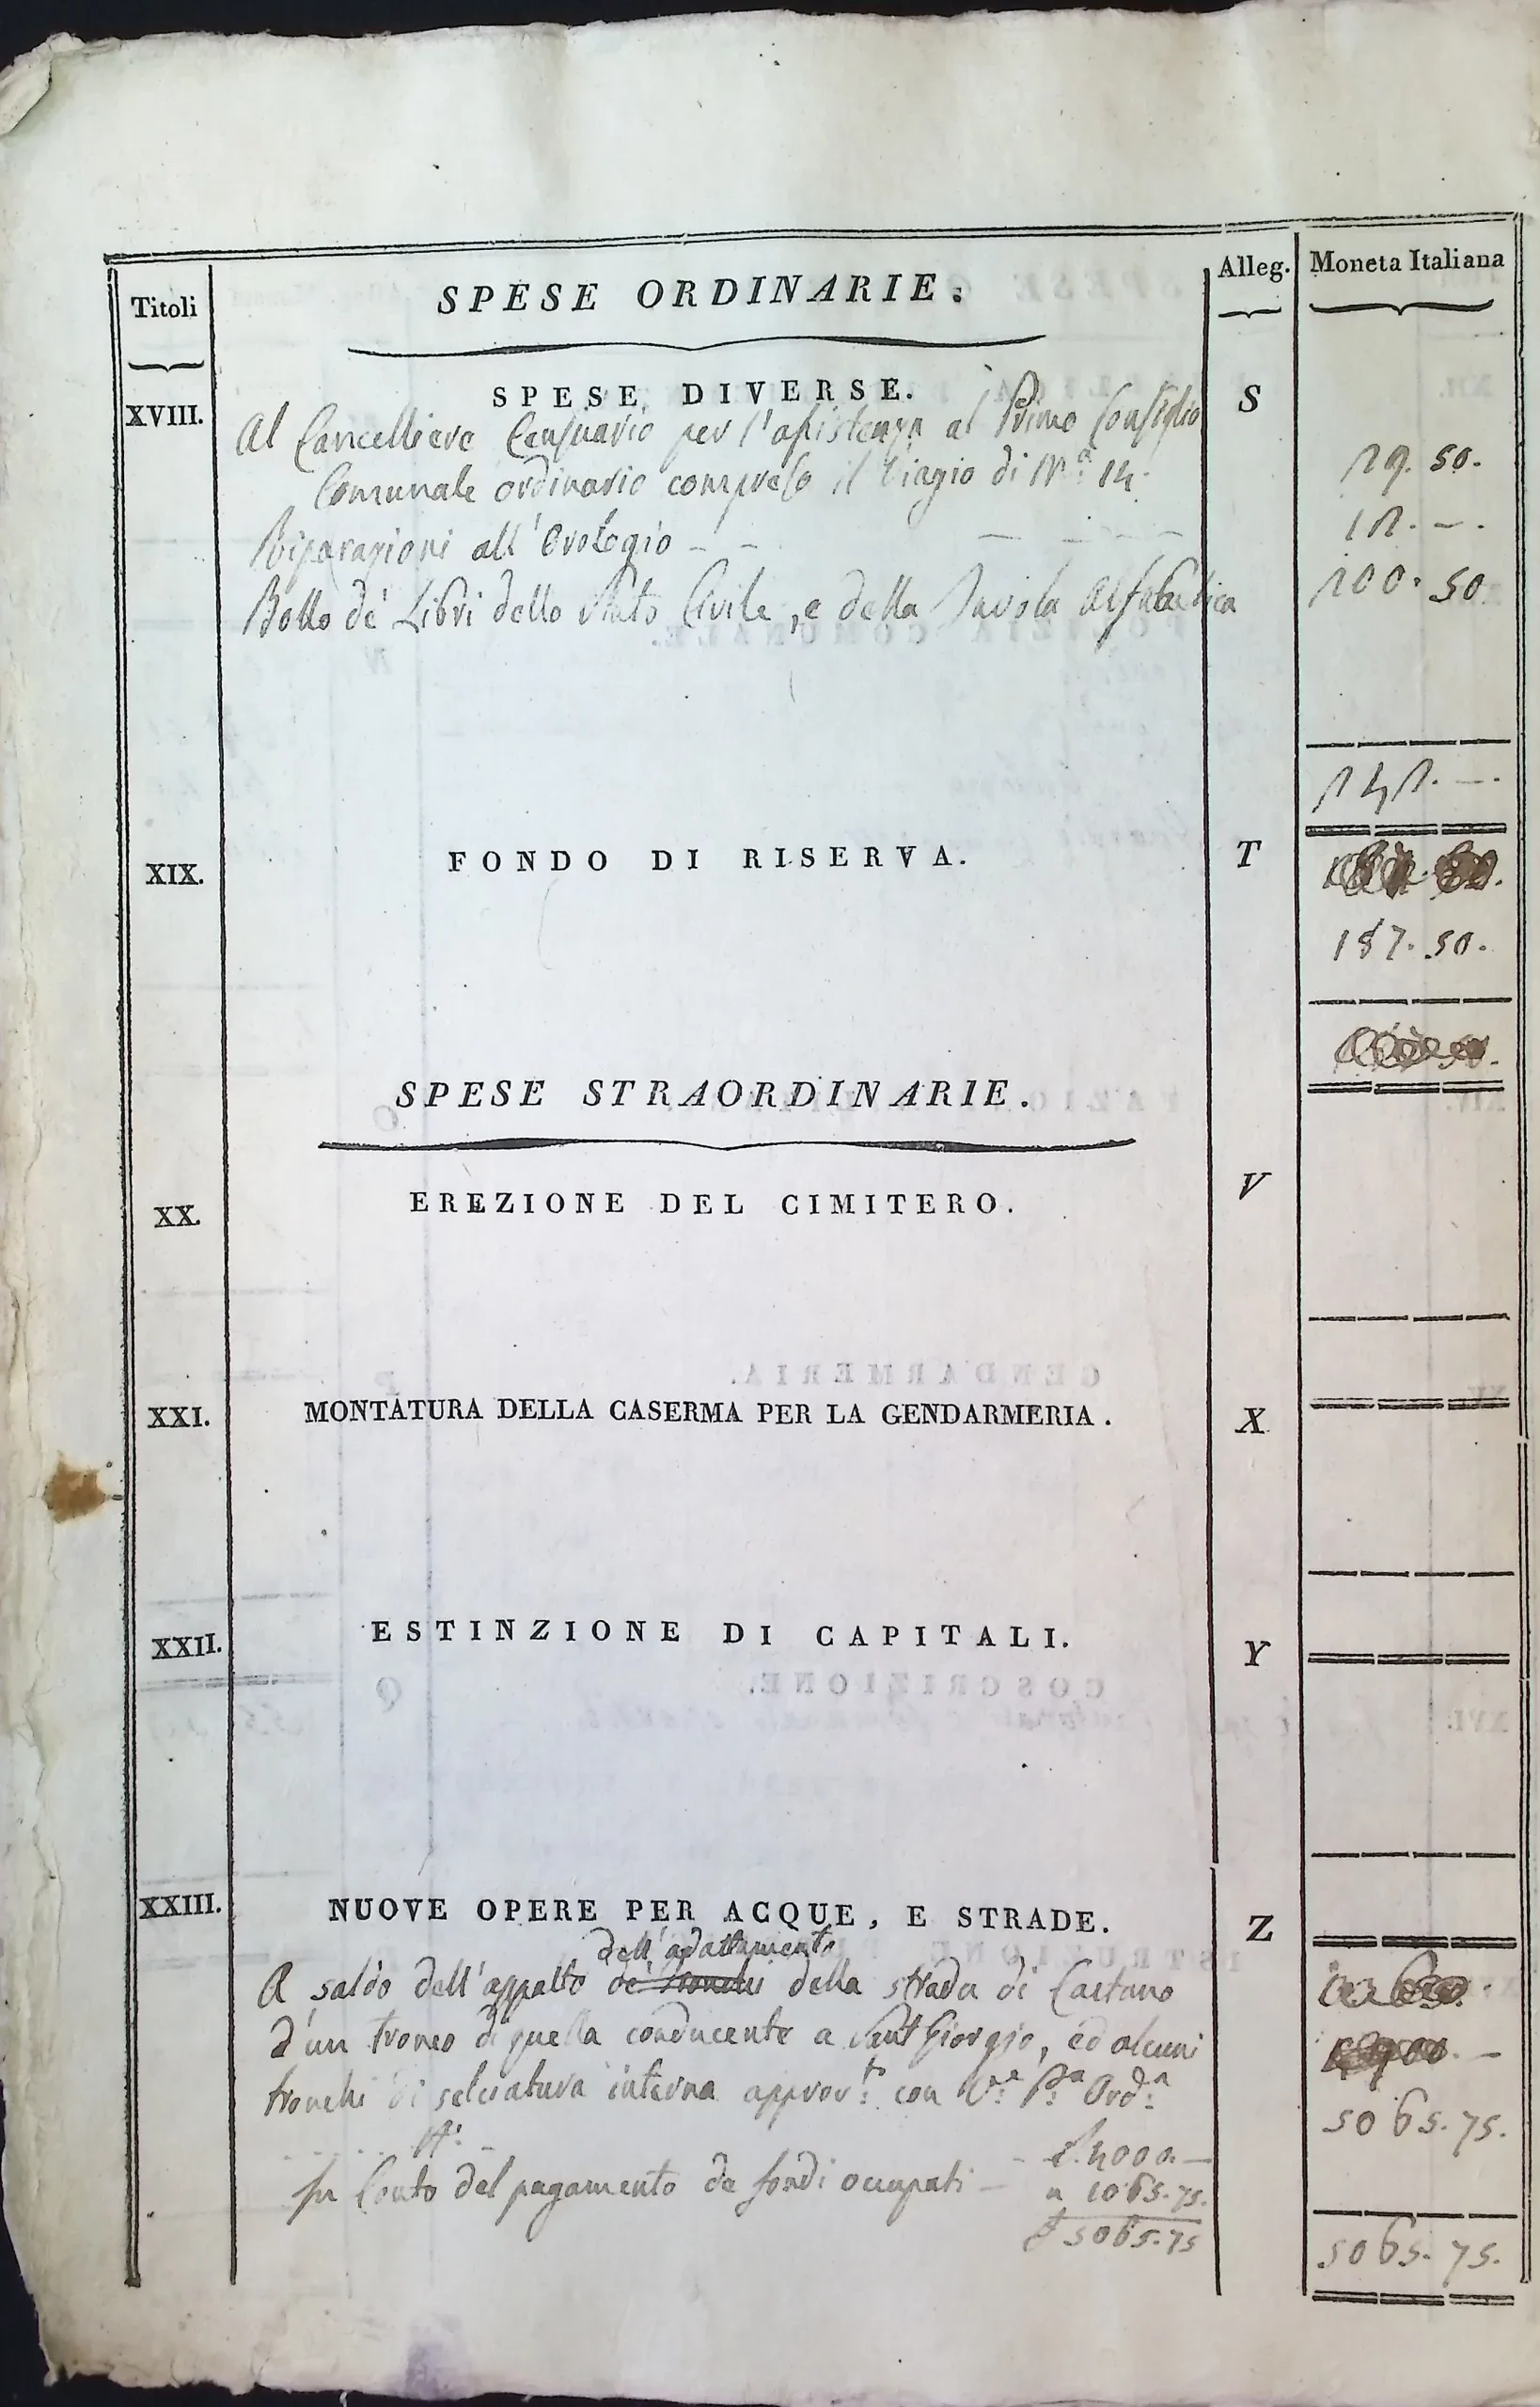 Titoli
SPESE ORDINARIE.
Alleg.
Moneta Italiana
XVIII.
SPESE DIVERSE.
S
Al Cancelliere Censuario per l'assistenza al Primo Consiglio
Comunale ordinario compreso il viagio di M.ª 14.
29. 50.
Riparazioni all'Orologio - -
12. - .
Bollo de' Libri dello Stato Civile, e della Tavola Alfabetica
200. 50.
242. - .
XIX.
FONDO DI RISERVA.
T
187. 50.
SPESE STRAORDINARIE.
XX.
EREZIONE DEL CIMITERO.
V
XXI.
MONTATURA DELLA CASERMA PER LA GENDARMERIA.
X
XXII.
ESTINZIONE DI CAPITALI.
Y
XXIII.
NUOVE OPERE PER ACQUE, E STRADE.
Z
dell'adattamento
A saldo dell'appalto de' tronchi della strada di Castano
d'un tronco di quella conducente a Sant Giorgio, ed alcuni
tronchi di selciatura interna approv.to con V.ª P.ª Ord.ª
5065. 75.
N.°
L. 4000. —
In Conto del pagamento de fondi occupati —
" 1065. 75.
L 5065. 75
5065. 75.